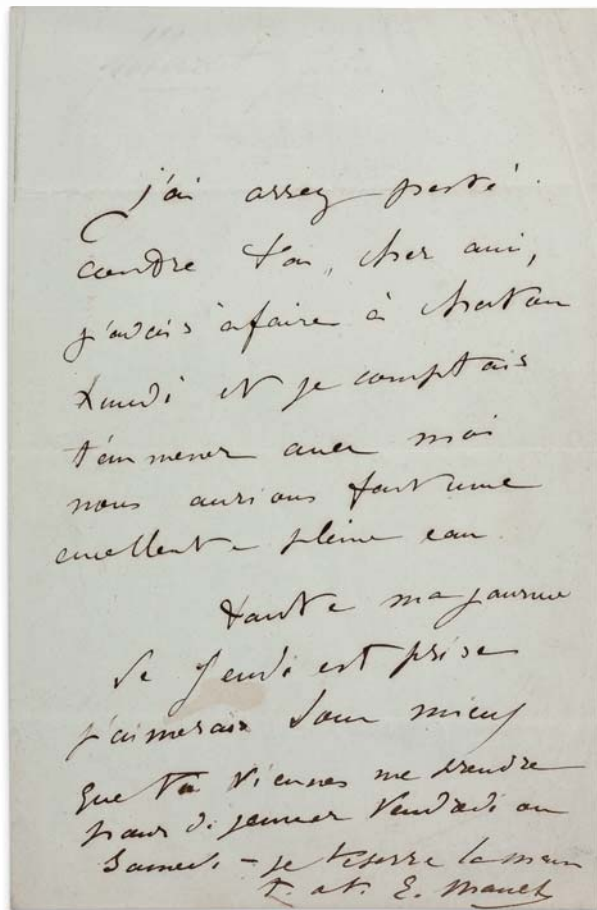 j'ai assez pesté
contre toi, cher ami,
j'avais à faire à Chatou
Lundi et je comptais
t'emmener avec moi
nous aurions fait une
excellente pleine eau.
toute ma journée
de Jeudi est prise
j'aimerais donc mieux
que tu viennes me prendre
pour déjeuner Vendredi ou
Samedi – je te serre la main
t. a t. E. Manet